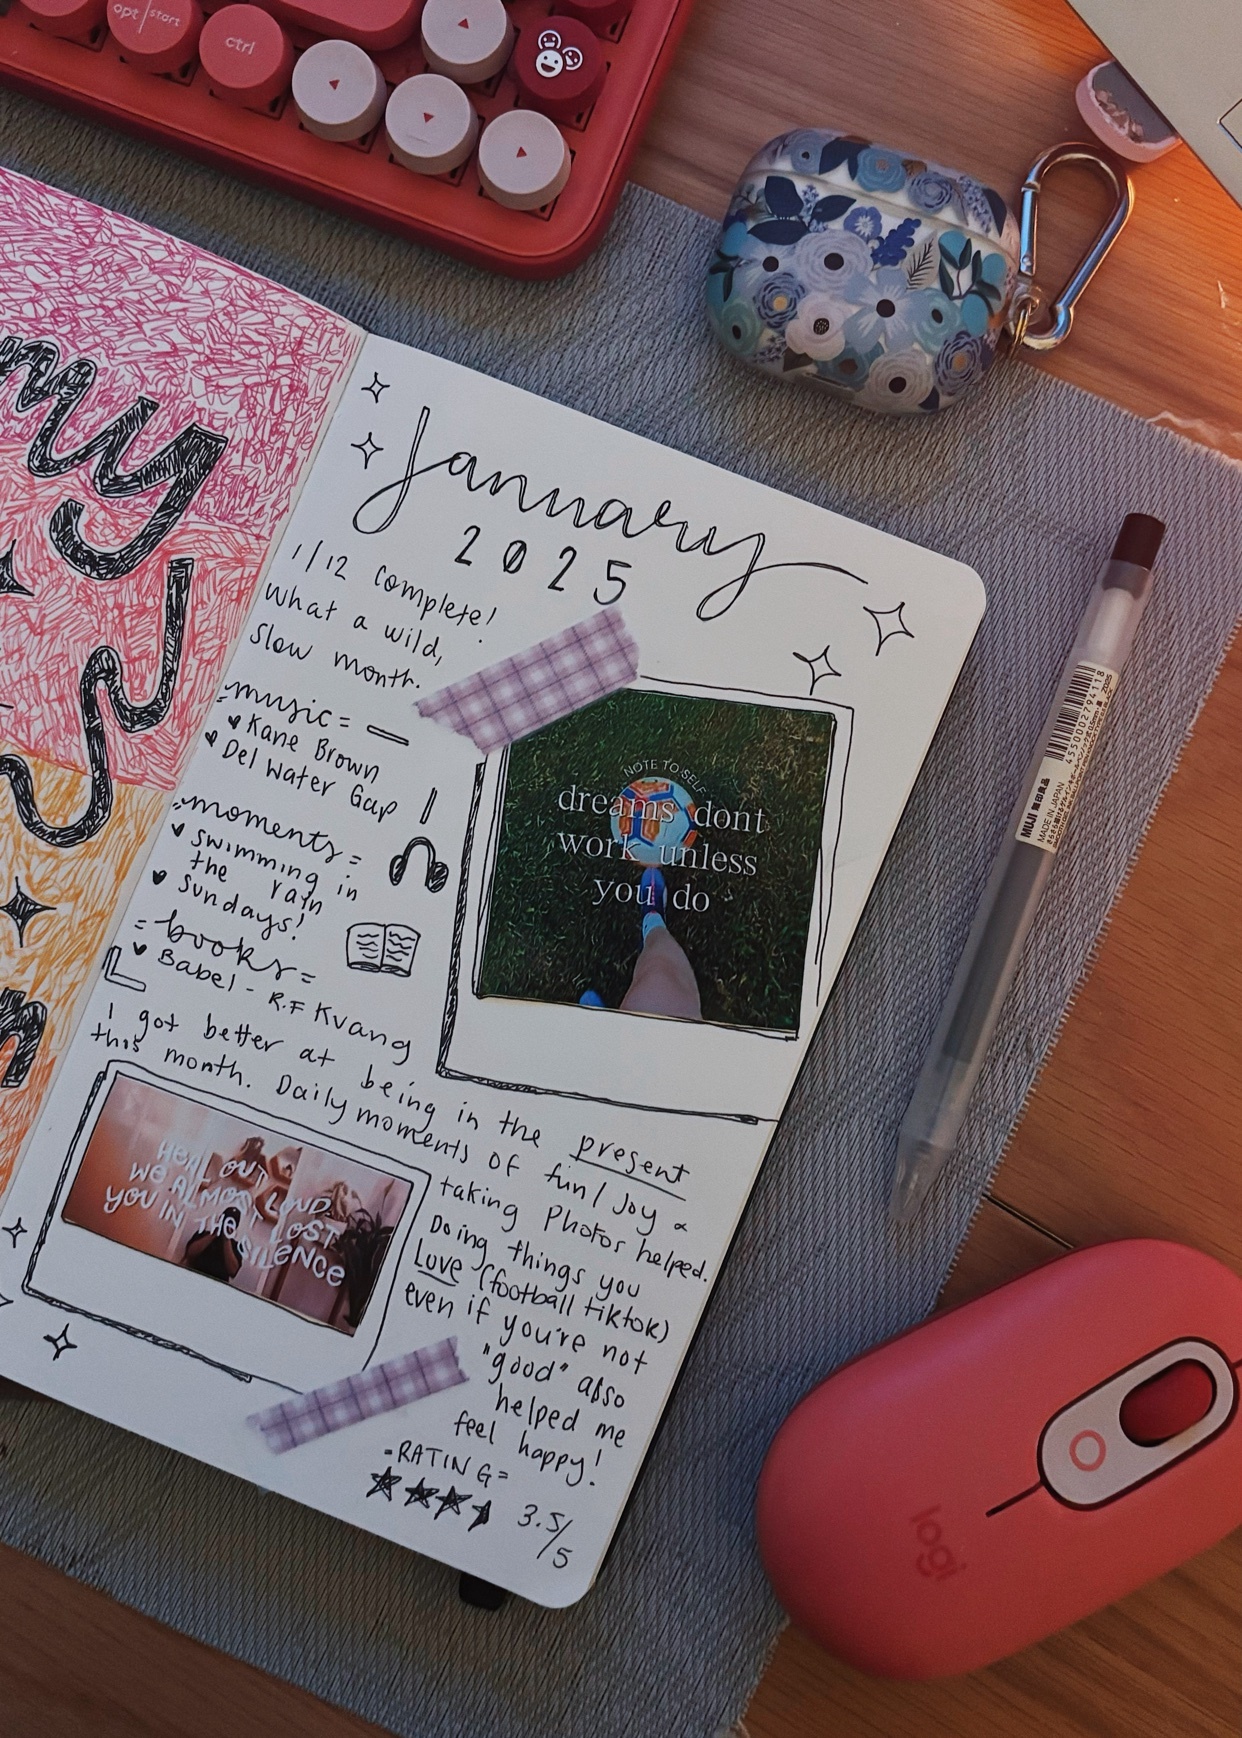 opt start
ctrl
my
January
2025
1/12 complete!
What a wild,
slow month.
music =
Kane Brown
Del Water Gap
=moments=
swimming in
the rain
sundays!
=books=
Babel - R.F Kvang
I got better at being in the present
this month. Daily moments of fun/joy &
taking Photos helped.
Doing things you
Love (football tiktok)
even if you're not
"good" also
helped me
feel happy!
-RATING=
3.5/5
NOTE TO SELF
dreams dont
work unless
you do
HEAL OUT LOUD
WE ALMOST LOST
YOU IN THE SILENCE
MUJ 無印良品
MADE IN JAPAN
4550002794118
logi